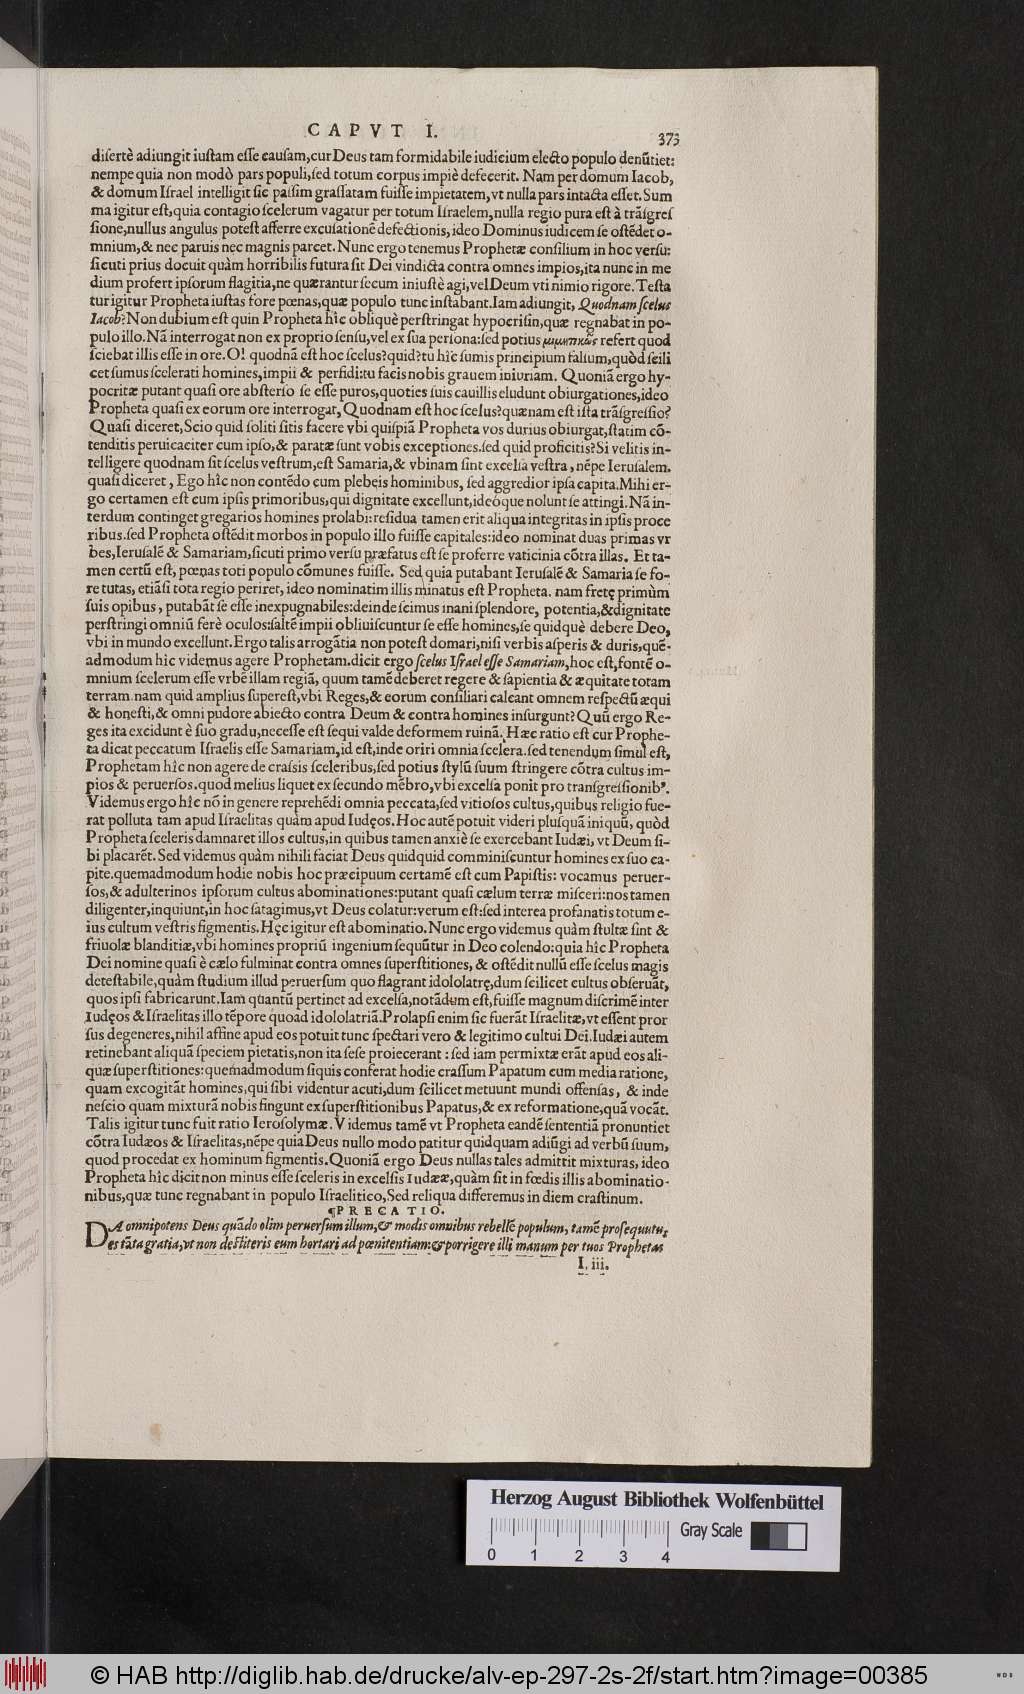 CAPVT I.
373
disertè adiungit iustam esse causam,cur Deus tam formidabile iudicium electo populo denũtiet:
nempe quia non modò pars populi,sed totum corpus impiè defecerit. Nam per domum Iacob,
& domum Israel intelligit sic passim grassatam fuisse impietatem,vt nulla pars intacta esset. Sum
ma igitur est,quia contagio scelerum vagatur per totum Israelem,nulla regio pura est à trãsgres
sione,nullus angulus potest afferre excusationẽ defectionis, ideo Dominus iudicem se ostẽdet o-
mnium,& nec paruis nec magnis parcet. Nunc ergo tenemus Prophetæ consilium in hoc versu:
sicuti prius docuit quàm horribilis futura sit Dei vindicta contra omnes impios,ita nunc in me
dium profert ipsorum flagitia,ne quærantur secum iniustè agi,vel Deum vti nimio rigore. Testa
tur igitur Propheta iustas fore pœnas,quæ populo tunc instabant.Iam adiungit, Quodnam scelus
Iacob? Non dubium est quin Propheta hîc obliquè perstringat hypocrisin,quæ regnabat in po-
pulo illo. Nã interrogat non ex proprio sensu,vel ex sua persona:sed potius μιμητικῶς refert quod
sciebat illis esse in ore. O! quodnã est hoc scelus?quid?tu hîc sumis principium falsum,quòd scili
cet sumus scelerati homines,impii & perfidi:tu facis nobis grauem iniuriam. Quoniã ergo hy-
pocritæ putant quasi ore absterso se esse puros,quoties suis cauillis eludunt obiurgationes,ideo
Propheta quasi ex eorum ore interrogat, Quodnam est hoc scelus?quænam est ista trãsgressio?
Quasi diceret,Scio quid soliti sitis facere vbi quispiã Propheta vos durius obiurgat,statim cõ-
tenditis peruicaciter cum ipso,& paratæ sunt vobis exceptiones.sed quid proficitis?Si velitis in-
telligere quodnam sit scelus vestrum,est Samaria,& vbinam sint excelsa vestra, nẽpe Ierusalem.
quasi diceret, Ego hîc non contẽdo cum plebeis hominibus, sed aggredior ipsa capita.Mihi er-
go certamen est cum ipsis primoribus,qui dignitate excellunt,ideóque nolunt se attingi. Nã in-
terdum continget gregarios homines prolabi:residua tamen erit aliqua integritas in ipsis proce
ribus.sed Propheta ostẽdit morbos in populo illo fuisse capitales:ideo nominat duas primas vr
bes,Ierusalẽ & Samariam,sicuti primo versu præfatus est se proferre vaticinia cõtra illas. Et ta-
men certũ est, pœnas toti populo cõmunes fuisse. Sed quia putabant Ierusalẽ & Samaria se fo-
re tutas, etiãsi tota regio periret, ideo nominatim illis minatus est Propheta. nam fretę primùm
suis opibus, putabãt se esse inexpugnabiles:deinde scimus inani splendore, potentia,&dignitate
perstringi omniũ ferè oculos:saltẽ impii obliuiscuntur se esse homines,se quidquè debere Deo,
vbi in mundo excellunt.Ergo talis arrogãtia non potest domari,nisi verbis asperis & duris,quẽ-
admodum hîc videmus agere Prophetam.dicit ergo scelus Israel esse Samariam,hoc est,fontẽ o-
mnium scelerum esse vrbẽ illam regiã, quum tamẽ deberet regere & sapientia & æquitate totam
terram.nam quid amplius superest,vbi Reges,& eorum consiliari calcant omnem respectũ æqui
& honesti,& omni pudore abiecto contra Deum & contra homines insurgunt? Quũ ergo Re-
ges ita excidunt è suo gradu,necesse est sequi valde deformem ruinã. Hæc ratio est cur Prophe-
ta dicat peccatum Israelis esse Samariam,id est,inde oriri omnia scelera.sed tenendum simul est,
Prophetam hîc non agere de crassis sceleribus,sed potius stylũ suum stringere cõtra cultus im-
pios & peruersos.quod melius liquet ex secundo mẽbro,vbi excelsa ponit pro transgressionibꝰ.
Videmus ergo hîc nõ in genere reprehẽdi omnia peccata,sed vitiosos cultus,quibus religio fue-
rat polluta tam apud Israelitas quàm apud Iudęos. Hoc autẽ potuit videri plusquã iniquũ, quòd
Propheta sceleris damnaret illos cultus,in quibus tamen anxiè se exercebant Iudæi, vt Deum si-
bi placarẽt. Sed videmus quàm nihili faciat Deus quidquid comminiscuntur homines ex suo ca-
pite.quemadmodum hodie nobis hoc præcipuum certamẽ est cum Papistis: vocamus peruer-
sos,& adulterinos ipsorum cultus abominationes:putant quasi cælum terræ misceri:nos tamen
diligenter,inquiunt,in hoc satagimus,vt Deus colatur:verum est:sed interea profanatis totum e-
ius cultum vestris figmentis. Hęc igitur est abominatio. Nunc ergo videmus quàm stultæ sint &
friuolæ blanditiæ,vbi homines propriũ ingenium sequũtur in Deo colendo:quia hîc Propheta
Dei nomine quasi è cælo fulminat contra omnes superstitiones, & ostẽdit nullũ esse scelus magis
detestabile,quàm studium illud peruersum quo flagrant idololatrę,dum scilicet cultus obseruãt,
quos ipsi fabricarunt.Iam quantũ pertinet ad excelsa,notãdum est,fuisse magnum discrimẽ inter
Iudęos & Israelitas illo tẽpore quoad idololatriã.Prolapsi enim sic fuerãt Israelitæ,vt essent pror
sus degeneres,nihil affine apud eos potuit tunc spectari vero & legitimo cultui Dei.Iudæi autem
retinebant aliquã speciem pietatis,non ita sese proiecerant : sed iam permixtæ erãt apud eos ali-
quæ superstitiones:quemadmodum siquis conferat hodie crassum Papatum cum media ratione,
quam excogitãt homines,qui sibi videntur acuti,dum scilicet metuunt mundi offensas, & inde
nescio quam mixturã nobis fingunt ex superstitionibus Papatus,& ex reformatione,quã vocãt.
Talis igitur tunc fuit ratio Ierosolymæ. Videmus tamẽ vt Propheta eandẽ sententiã pronuntiet
cõtra Iudæos & Israelitas,nẽpe quia Deus nullo modo patitur quidquam adiũgi ad verbũ suum,
quod procedat ex hominum figmentis. Quoniã ergo Deus nullas tales admittit mixturas, ideo
Propheta hîc dicit non minus esse sceleris in excelsis Iudææ,quàm sit in fœdis illis abominatio-
nibus,quæ tunc regnabant in populo Israelitico,Sed reliqua differemus in diem crastinum.
¶PRECATIO.
DA omnipotens Deus quãdo olim peruersum illum,& modis omnibus rebellẽ populum, tamẽ prosequutus
es tãta gratia,vt non destiteris eum hortari ad pœnitentiam:& porrigere illi manum per tuos Prophetas
I. iii.
Herzog August Bibliothek Wolfenbüttel
Gray Scale
0 1 2 3 4
© HAB http://diglib.hab.de/drucke/alv-ep-297-2s-2f/start.htm?image=00385